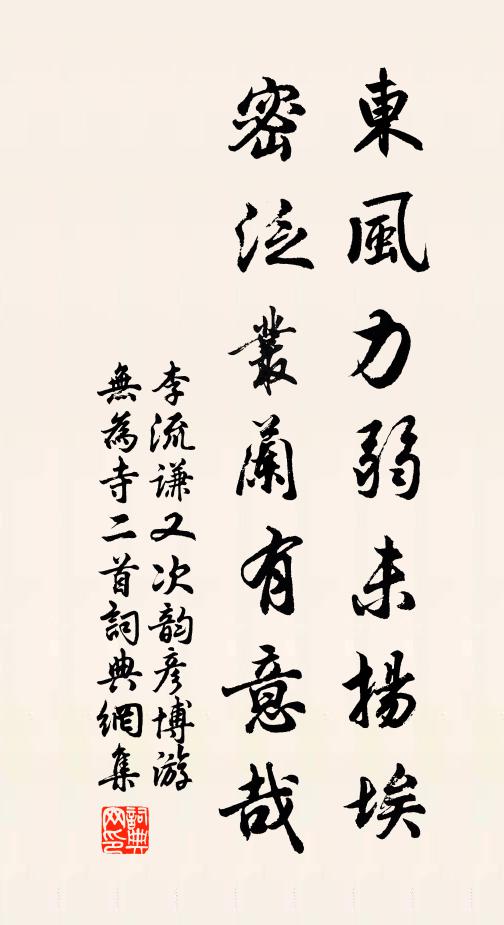 東風力弱未揚埃
密泛叢蘭有意哉
李流謙又次韵彦博游
無為寺二首詞典網集
詞典
网印